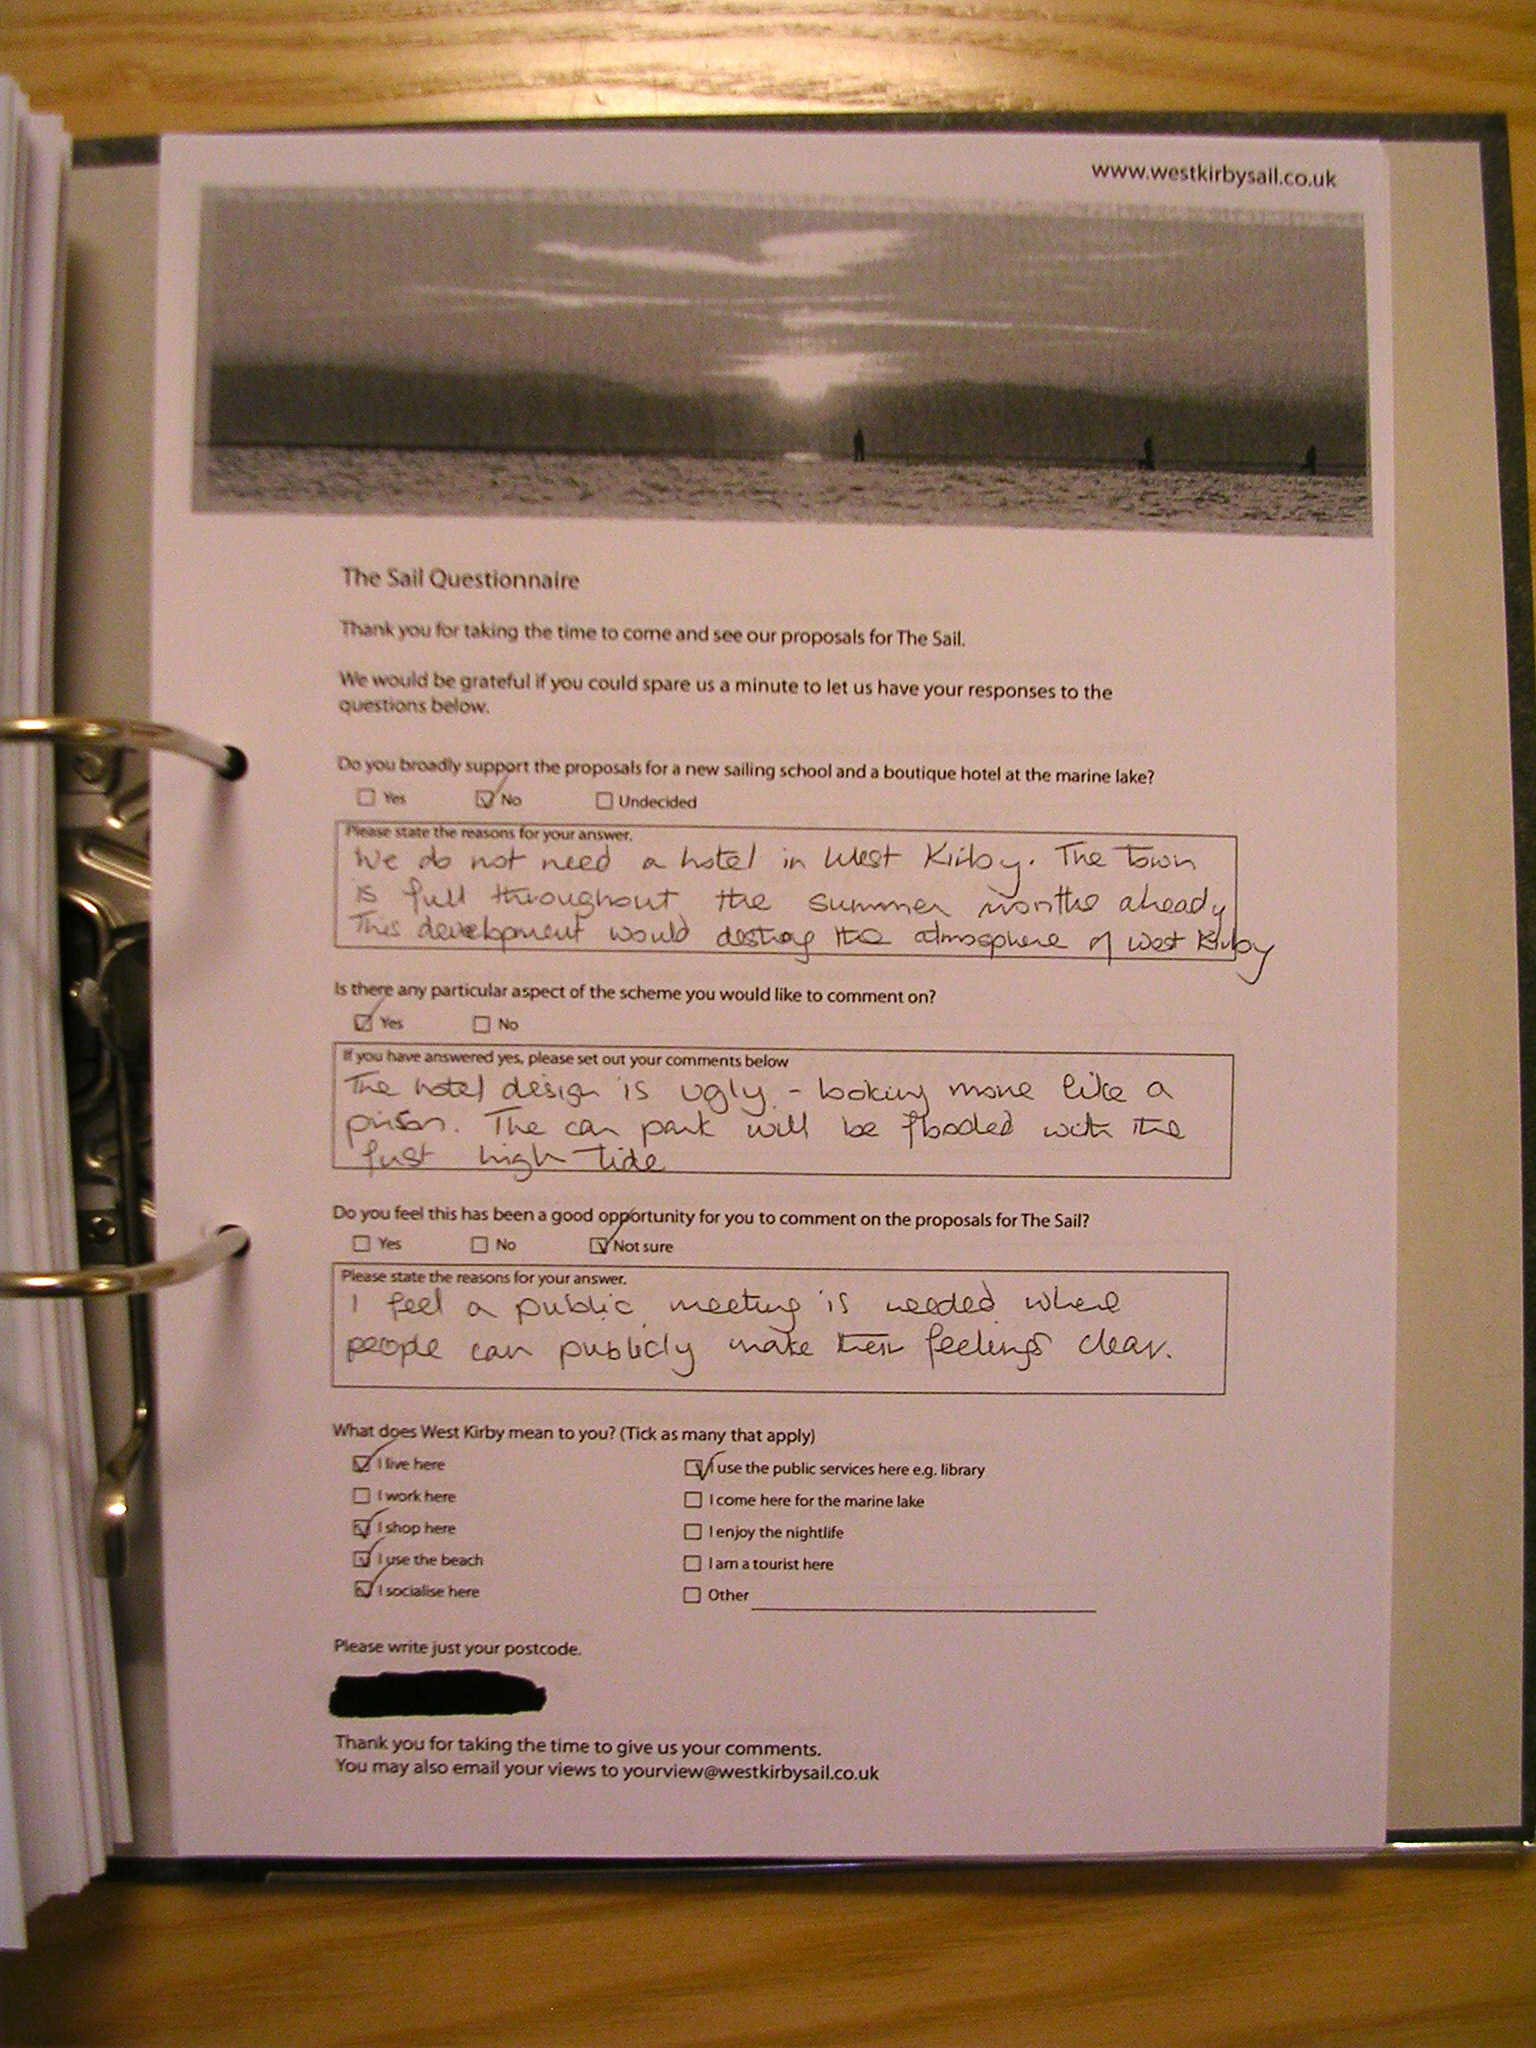 www.westkirbysail.co.uk
The Sail Questionnaire
Thank you for taking the time to come and see our proposals for The Sail.
We would be grateful if you could spare us a minute to let us have your responses to the
questions below.
Do you broadly support the proposals for a new sailing school and a boutique hotel at the marine lake?
Yes No Undecided
Please state the reasons for your answer.
We do not need a hotel in West Kirby. The town
is full throughout the summer months already
This development would destroy the atmosphere of West Kirby
Is there any particular aspect of the scheme you would like to comment on?
Yes No
If you have answered yes, please set out your comments below
The hotel design is ugly - looking more like a
prison. The car park will be flooded with the
first high tide
Do you feel this has been a good opportunity for you to comment on the proposals for The Sail?
Yes No Not sure
Please state the reasons for your answer.
I feel a public meeting is needed where
people can publicly make their feelings clear.
What does West Kirby mean to you? (Tick as many that apply)
I live here I use the public services here e.g. library
I work here I come here for the marine lake
I shop here I enjoy the nightlife
I use the beach I am a tourist here
I socialise here Other
Please write just your postcode.
Thank you for taking the time to give us your comments.
You may also email your views to yourview@westkirbysail.co.uk